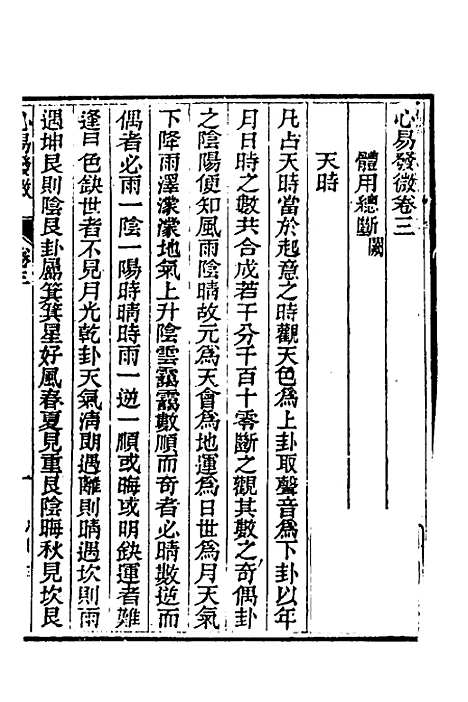 心易發微卷三
體用總斷闕
天時
凡占天時當於起意之時觀天色為上卦取聲音為下卦以年
月日時之數共合成若干分千百十零斷之觀其數之奇偶卦
之陰陽便知風雨陰晴故元為天會為地運為日世為月天氣
下降雨澤濛濛地氣上升陰雲靄靄數順而奇者必晴數逆而
偶者必雨一陰一陽時晴時雨一逆一順或晦或明缺運者難
逢日色缺世者不見月光乾卦天氣清朗遇離則晴遇坎則雨
遇坤艮則陰艮卦屬箕箕星好風春夏見重艮陰晦秋見坎艮
心易發微 卷三